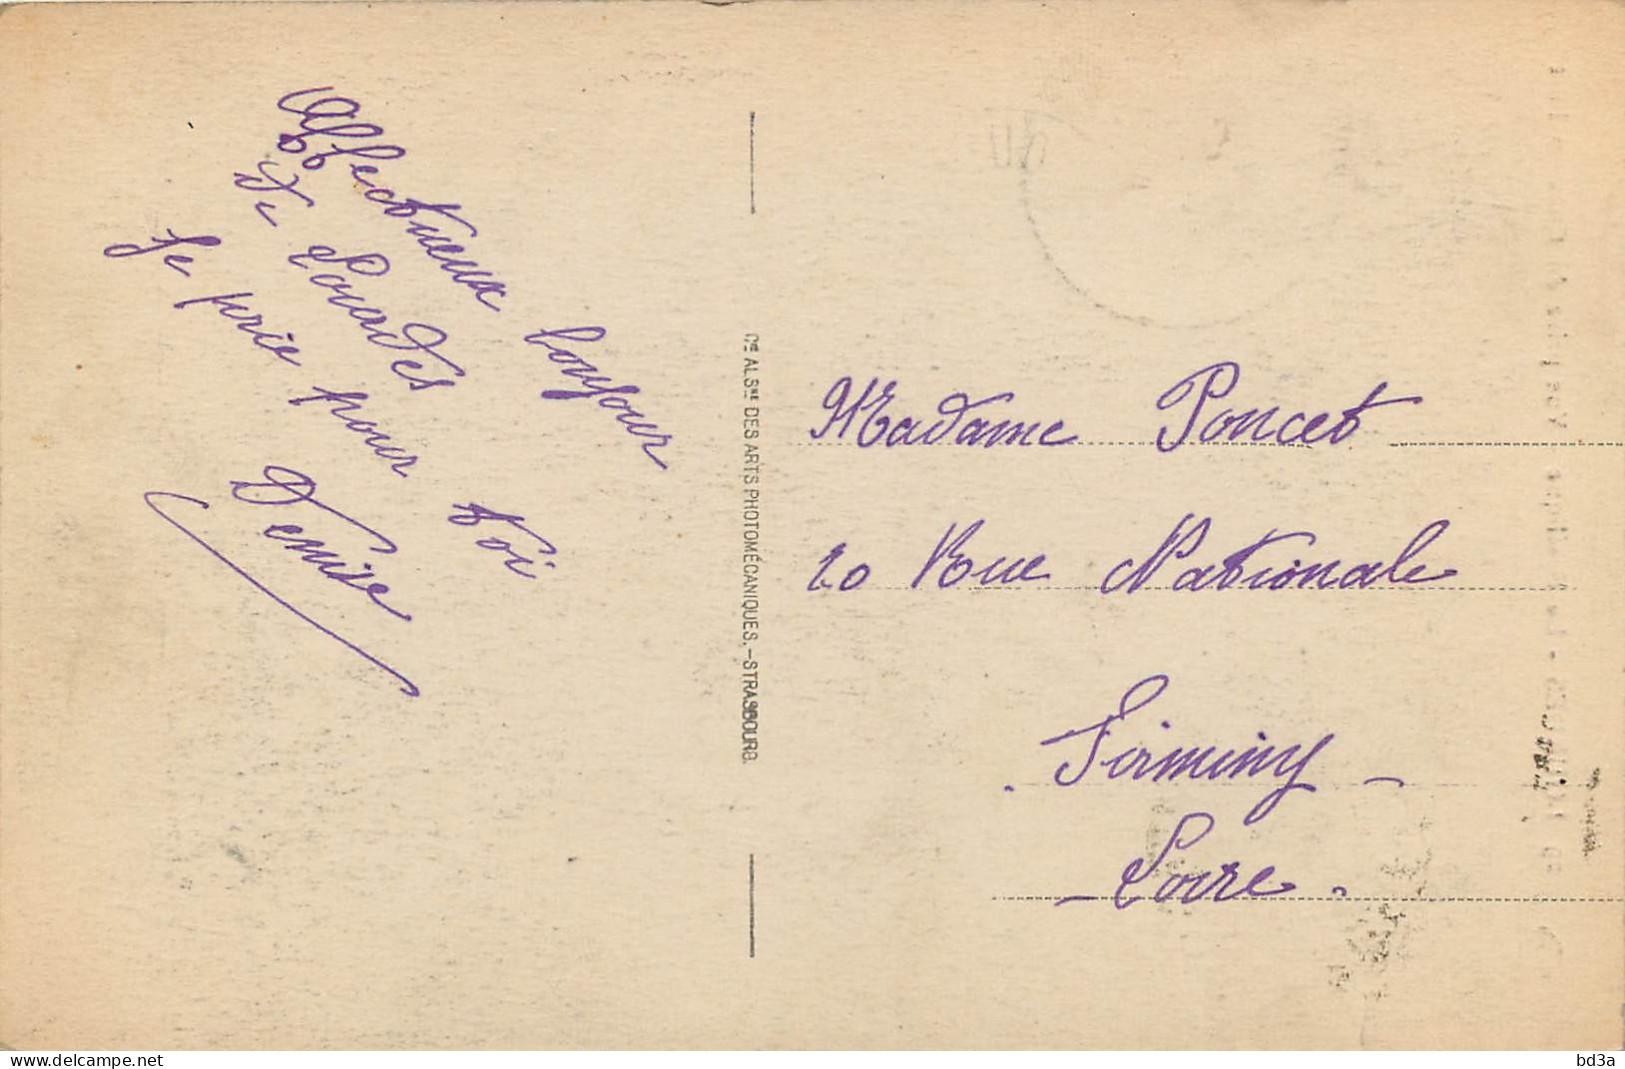 Affectueux bonjour
de Lourdes
Je prie pour toi
Denise
Cie ALSne DES ARTS PHOTOMÉCANIQUES.-STRASBOURG
Madame Poncet
20 Rue Nationale
Firminy -
- Loire.
www.delcampe.net
bd3a